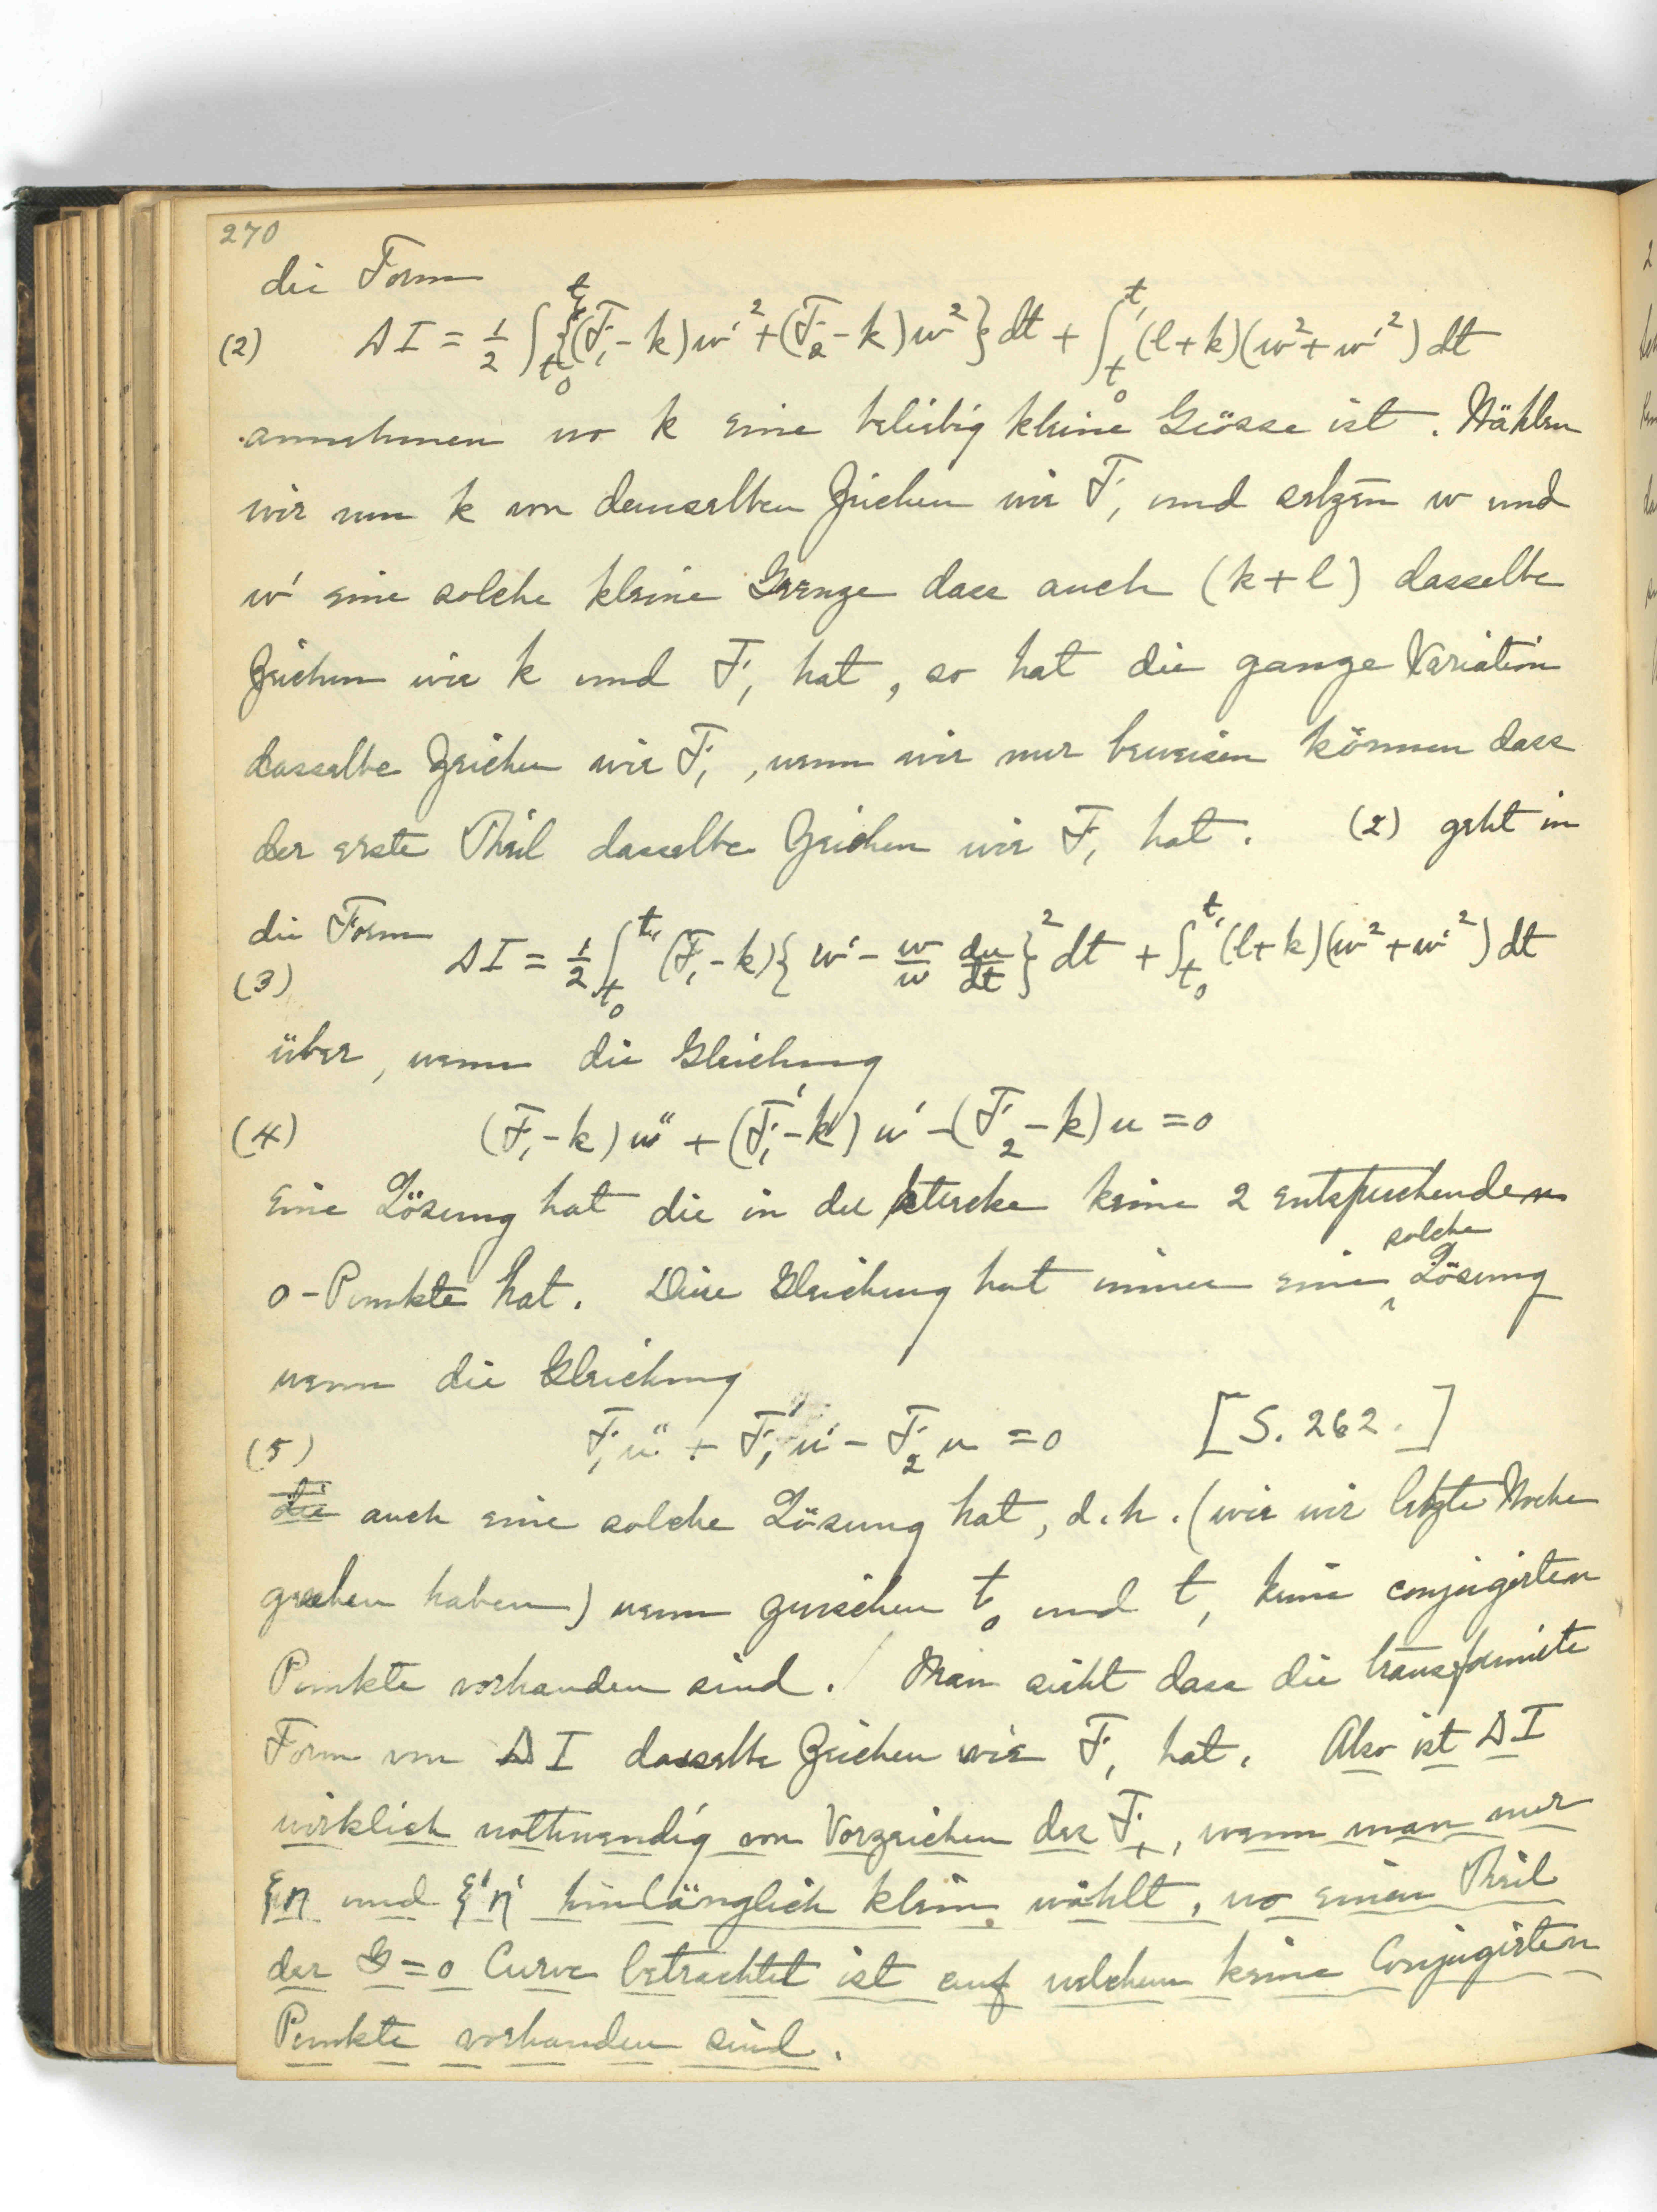 270
die Form
(2) ΔI = 1/2 ∫_{t_0}^{t_1} {(F_1 - k) w'^2 + (F_2 - k) w^2} dt + ∫_{t_0}^{t_1} (l + k)(w^2 + w'^2) dt
annehmen wo k eine beliebig kleine Grösse ist. Wählen
wir nun k von demselben Zeichen wie F_1 und setzen w und
w' eine solche kleine Grenze dass auch (k + l) dasselbe
Zeichen wie k und F_1 hat, so hat die ganze Variation
dasselbe Zeichen wie F_1, wenn wir nur beweisen können dass
der erste Theil dasselbe Zeichen wie F_1 hat. (2) geht in
die Form
(3) ΔI = 1/2 ∫_{t_0}^{t_1} (F_1 - k) {w' - w/u du/dt}^2 dt + ∫_{t_0}^{t_1} (l + k)(w^2 + w'^2) dt
über, wenn die Gleichung
(4) (F_1 - k) u'' + (F_1' - k') u' - (F_2 - k) u = 0
eine Lösung hat die in der Strecke keine 2 entsprechenden
0-Punkte hat. Diese Gleichung hat immer eine solche Lösung
wenn die Gleichung
(5) F_1 u'' + F_1' u' - F_2 u = 0 [S. 262.]
die auch eine solche Lösung hat, d.h. (wie wir letzte Woche
gesehen haben) wenn zwischen t_0 und t_1 keine conjugirten
Punkte vorhanden sind. / Man sieht dass die transformirte
Form von ΔI dasselbe Zeichen wie F_1 hat. Also ist ΔI
wirklich nothwendig von Vorzeichen des F_1, wenn man nur
ξη und ξ'η' hinlänglich klein wählt, wo einen Theil
der G = 0 Curve betrachtet ist auf welchem keine Conjugirten
Punkte vorhanden sind.